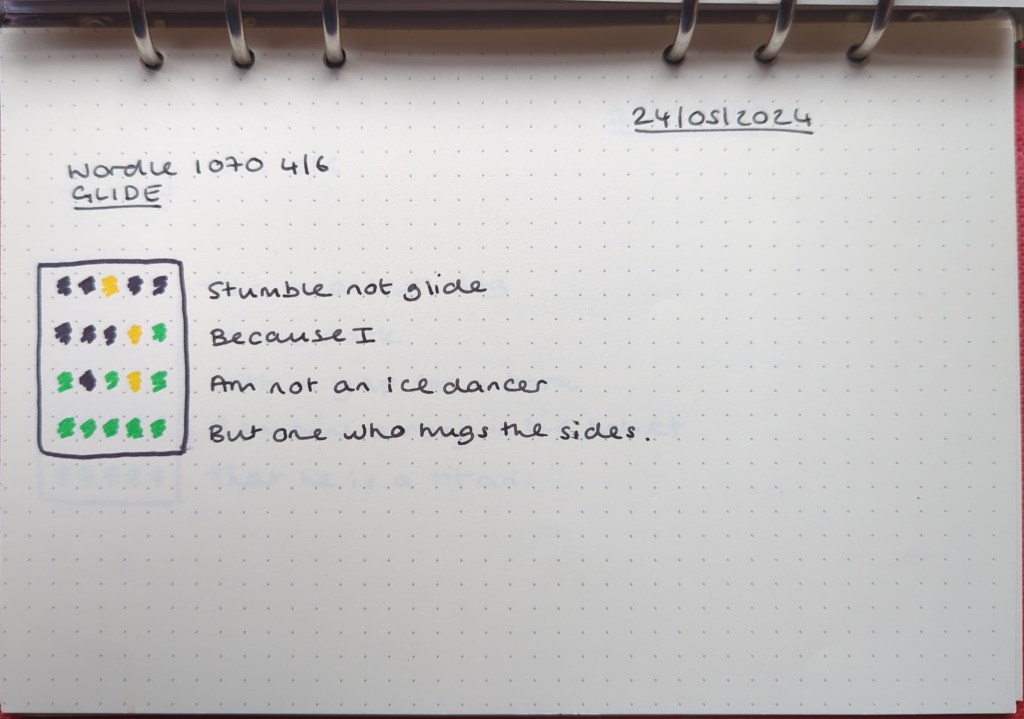 24/05/2024
Wordle 1070 4/6
GLIDE
Stumble not glide
Because I
Am not an ice dancer
But one who hugs the sides.
That he is a titan.